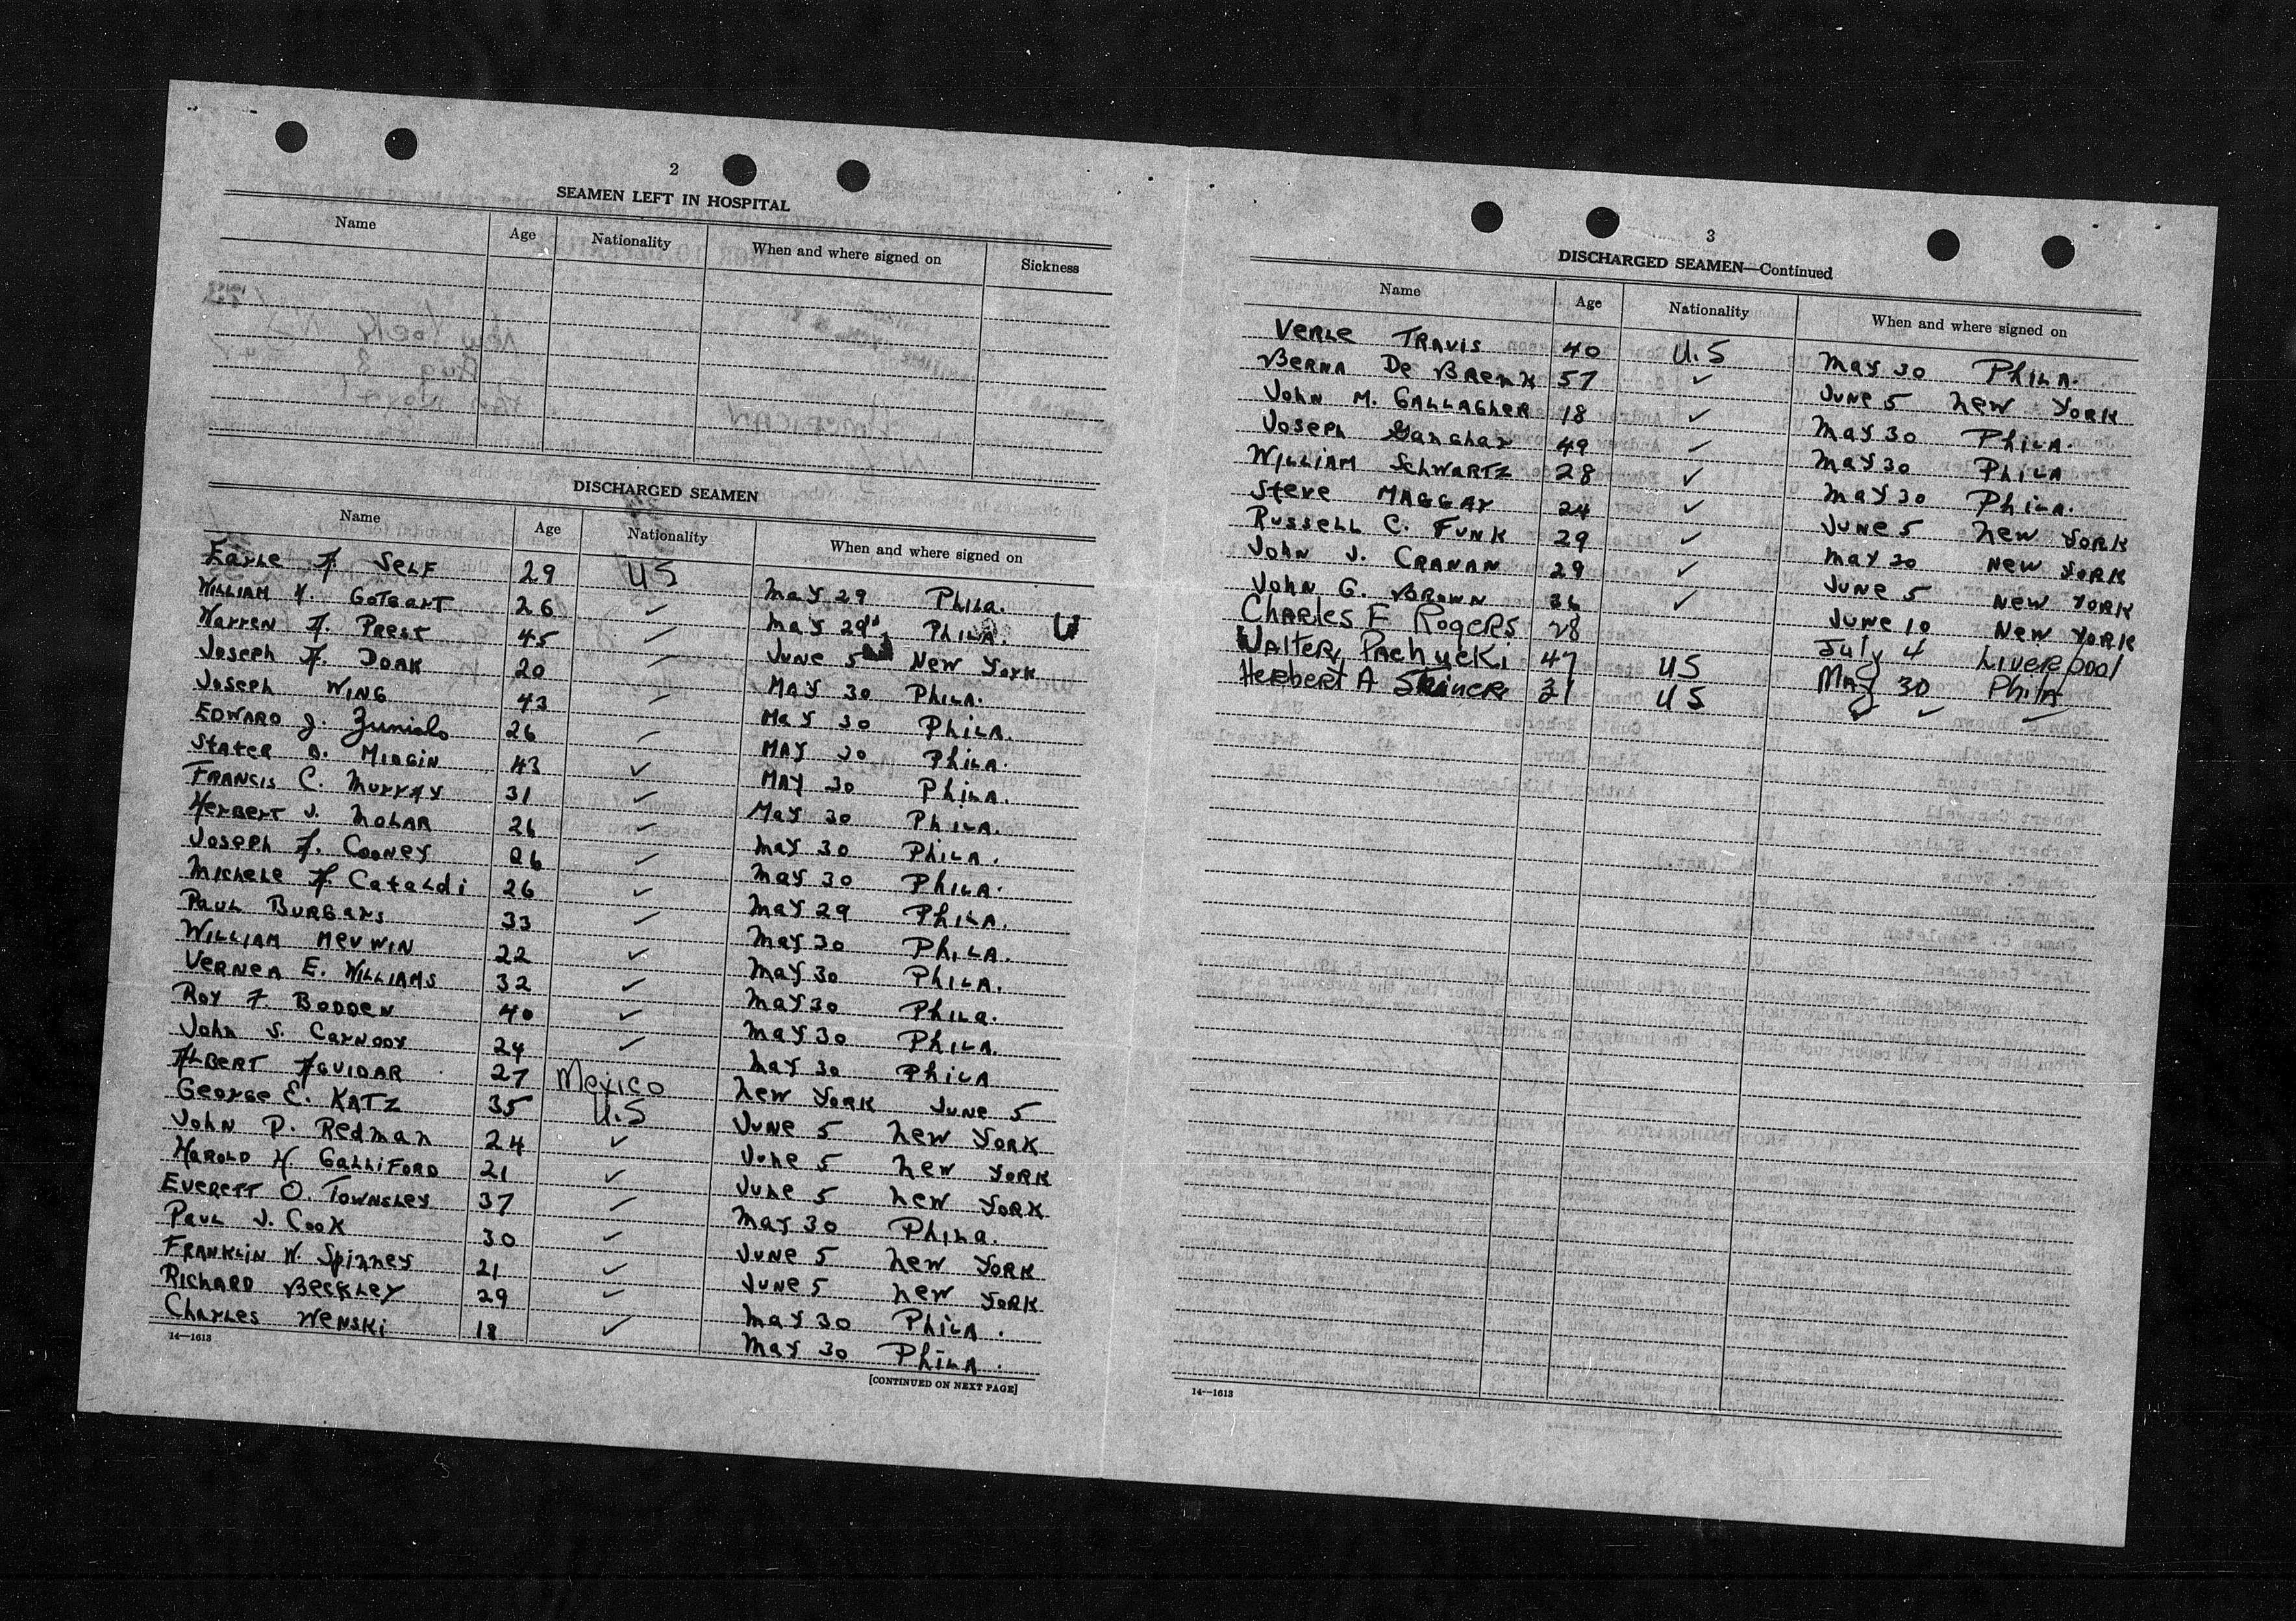 2
SEAMEN LEFT IN HOSPITAL
Name Age Nationality When and where signed on Sickness
DISCHARGED SEAMEN
Name Age Nationality When and where signed on
Earle A. Self 29 US May 29 Phila.
William H. Gotbart 26 ✓ May 29 Phila.
Warren A. Prest 45 ✓ June 5 New York
Joseph A. Doak 20 ✓ May 30 Phila.
Joseph Wing 43 ✓ May 30 Phila.
Edward J. 26 ✓ May 30 Phila.
Stater D. Midgin 43 ✓ May 30 Phila.
Francis C. Murray 31 ✓ May 30 Phila.
Herbert J. Molar 26 ✓ May 30 Phila.
Joseph F. Cooney 26 ✓ May 30 Phila.
Michele A. Cataldi 26 ✓ May 29 Phila.
Paul Burgars 33 ✓ May 30 Phila.
William 22 ✓ May 30 Phila.
Verner E. Williams 32 ✓ May 30 Phila.
Roy F. Bodden 40 ✓ May 30 Phila.
John S. 24 ✓ May 30 Phila
Albert Aguidar 27 Mexico New York June 5
George E. Katz 35 U.S June 5 New York
John P. Redman 24 ✓ June 5 New York
Harold H Galliford 21 ✓ June 5 New York
Everett O. Townsley 37 ✓ May 30 Phila.
Paul J. Cook 30 ✓ June 5 New York
Franklin W. Spinney 21 ✓ June 5 New York
Richard Beckley 29 ✓ May 30 Phila.
Charles Wenski 18 ✓ May 30 Phila.
14—1613
[CONTINUED ON NEXT PAGE]
3
DISCHARGED SEAMEN—Continued
Name Age Nationality When and where signed on
Verle Travis 40 U.S May 30 Phila.
Berna De Brenk 57 ✓ June 5 New York
John M. Gallagher 18 ✓ May 30 Phila.
Joseph Ganchar 49 ✓ May 30 Phila
William Schwartz 28 ✓ May 30 Phila.
Steve Maggay 24 ✓ June 5 New York
Russell C. Funk 29 ✓ May 30 New York
John J. Cranan 29 ✓ June 5 New York
John G. Brown 36 ✓ June 10 New York
Charles F Rogers 28 July 4 Liverpool
Walter Pachucki 47 US May 30 Phila
Herbert A 31 US ✓ ✓ ✓
14—1613